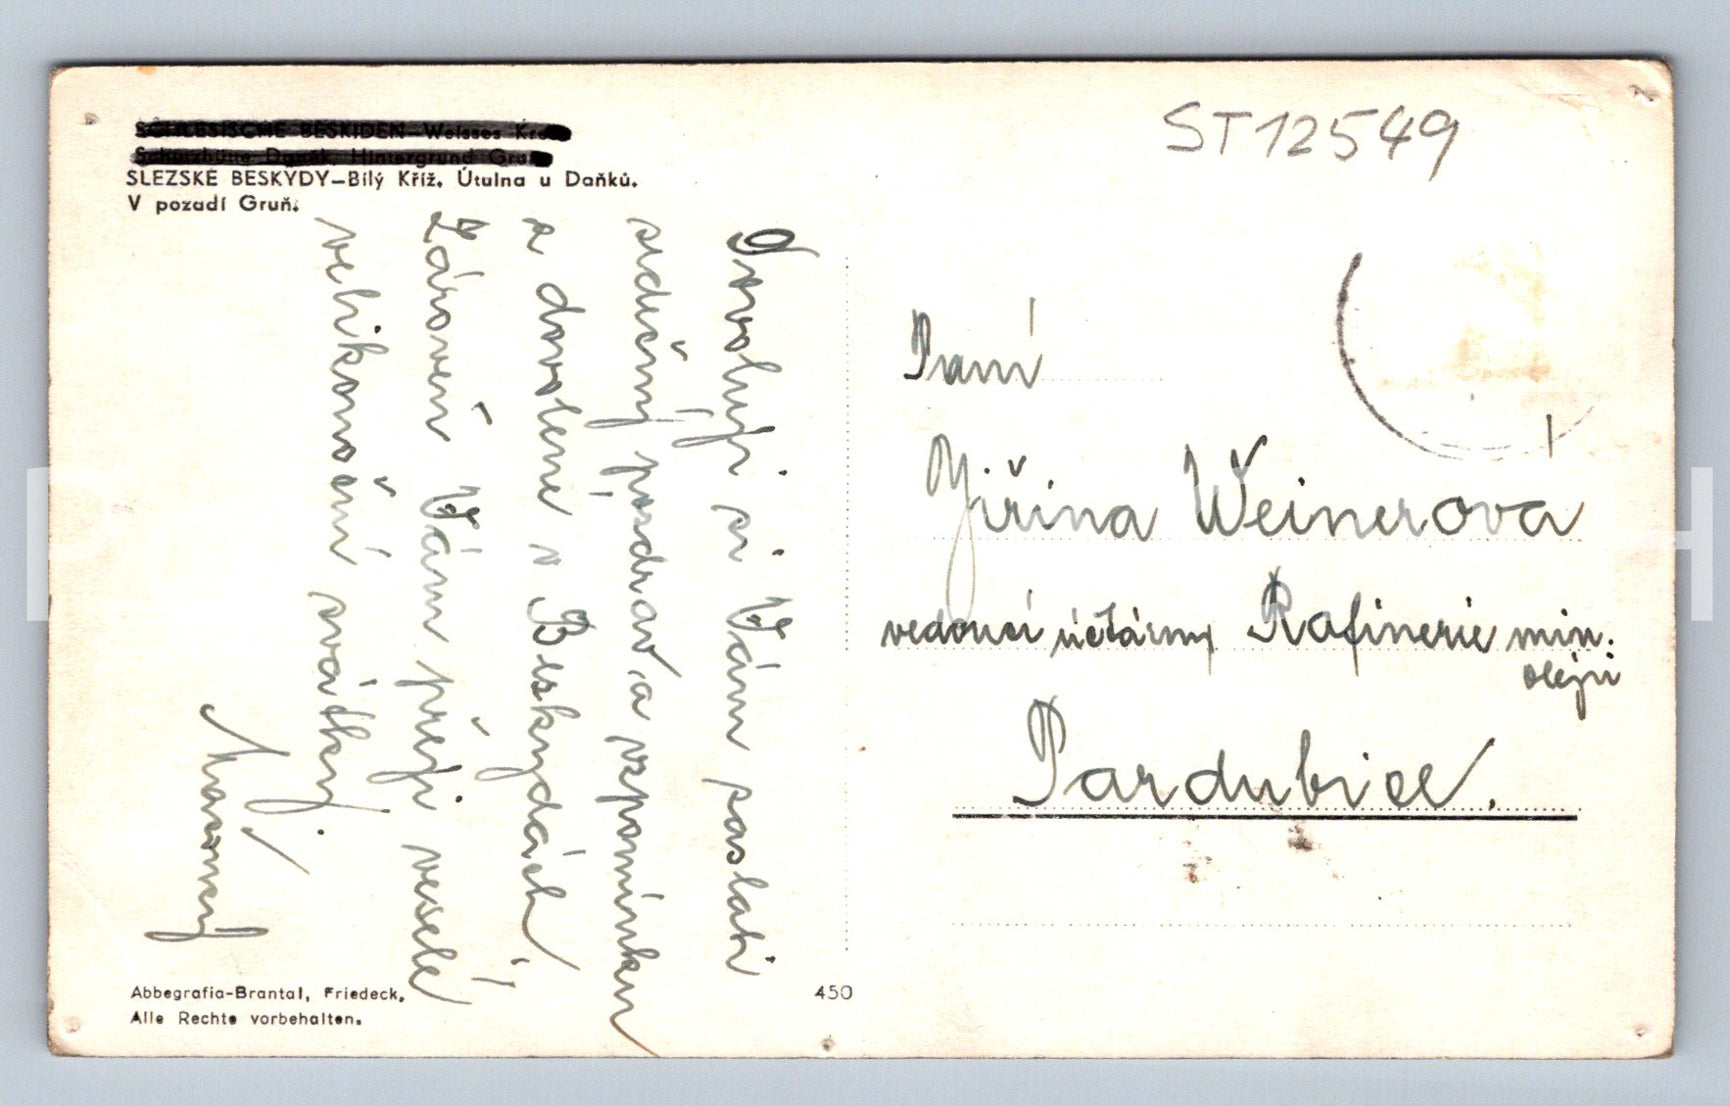 SCHLESISCHE BESKIDEN—Weisses
Schutzhütte Hintergrund
SLEZSKÉ BESKYDY—Bílý Kříž. Útulna u Daňků.
V pozadí Gruň.
ST12549
Dovoluji si Vám poslati
srdečný pozdrav a vzpomínku
z dovolené v Beskydách
Zároveň Vám přeji veselé
velikonoční svátky.
Paní
Jiřina Weinerová
vedoucí účtárny Rafinerie min.
olejů
Pardubice.
Abbegrafia-Brantal, Friedeck.
Alle Rechte vorbehalten.
450